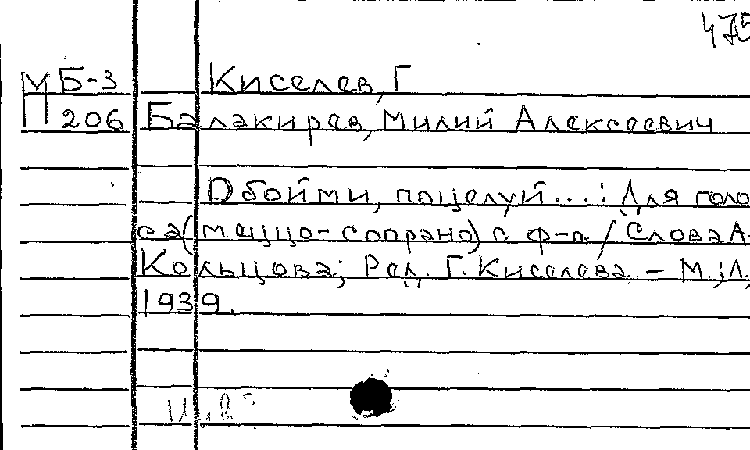 475
МБ-3 Киселев, Г
П206 Балакирев, Милий Алексеевич
Обойми, поцелуй...: Для голо
са (меццо-сопрано) с ф-п. / Слова А.
Кольцова; Ред. Г. Киселева. - М.; Л.,
1939.